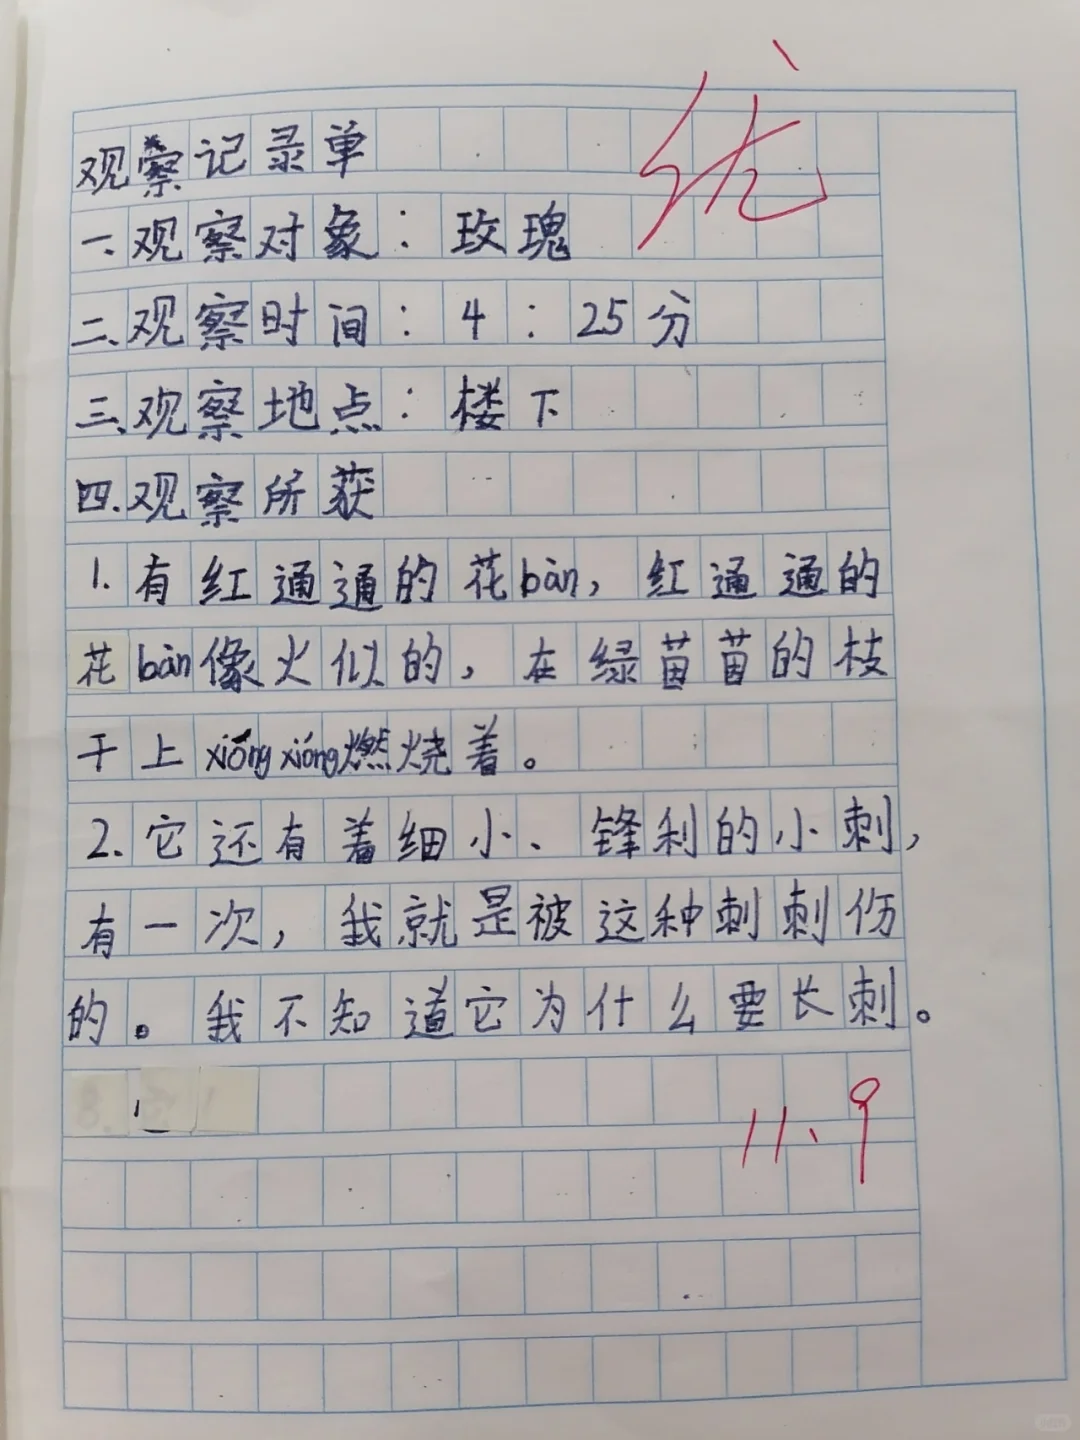 优
观察记录单
一.观察对象：玫瑰
二、观察时间：4：25分
三、观察地点：楼下
四.观察所获
1.有红通通的花bàn，红通通的
花bàn像火似的，在绿茵茵的枝
干上xióng xióng燃烧着。
2.它还有着细小、锋利的小刺，
有一次，我就是被这种刺刺伤
的。我不知道它为什么要长刺。
11、9